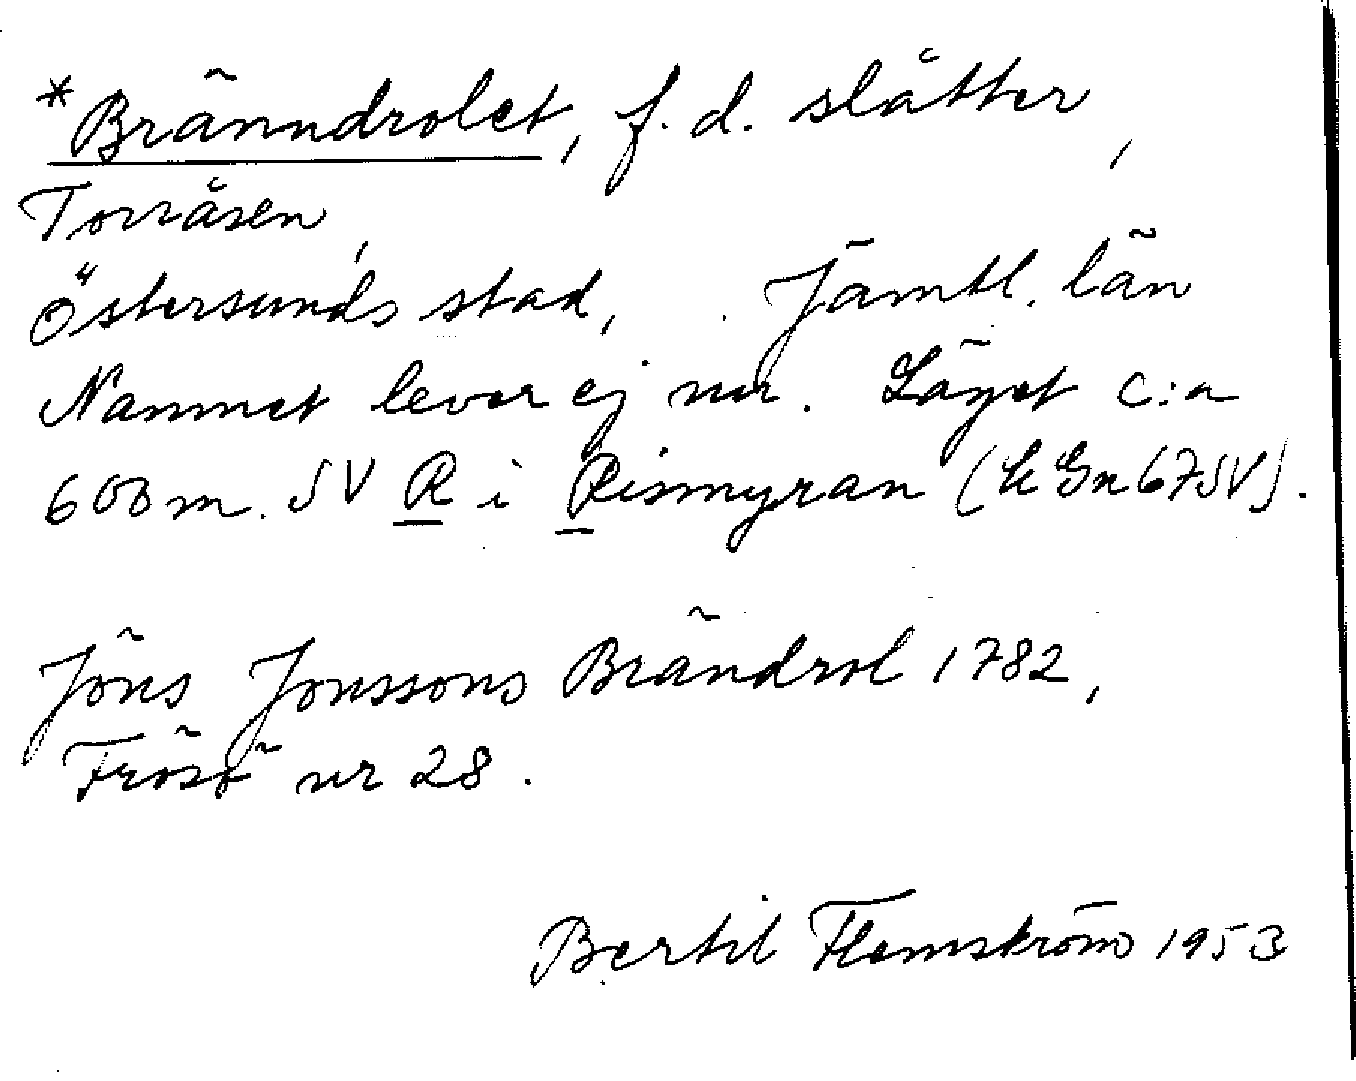 *Bränndrolet, f.d. slåtter,
Torråsen,
Östersunds stad, Jämtl. län
Namnet lever ej nu. Läget c:a
600 m. SV R i Rismyran (67SV).
Jöns Jonssons Brändrol 1782,
Frösö nr 28.
Bertil Flemström 1953